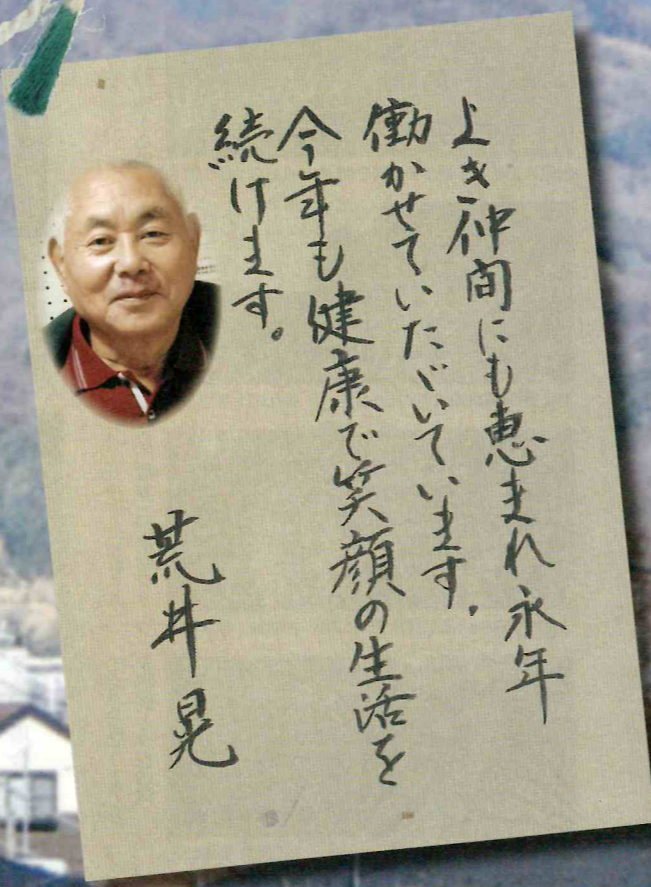 よき仲間にも恵まれ永年
働かせていたゞいています。
今年も健康で笑顔の生活を
続けます。
荒井晃